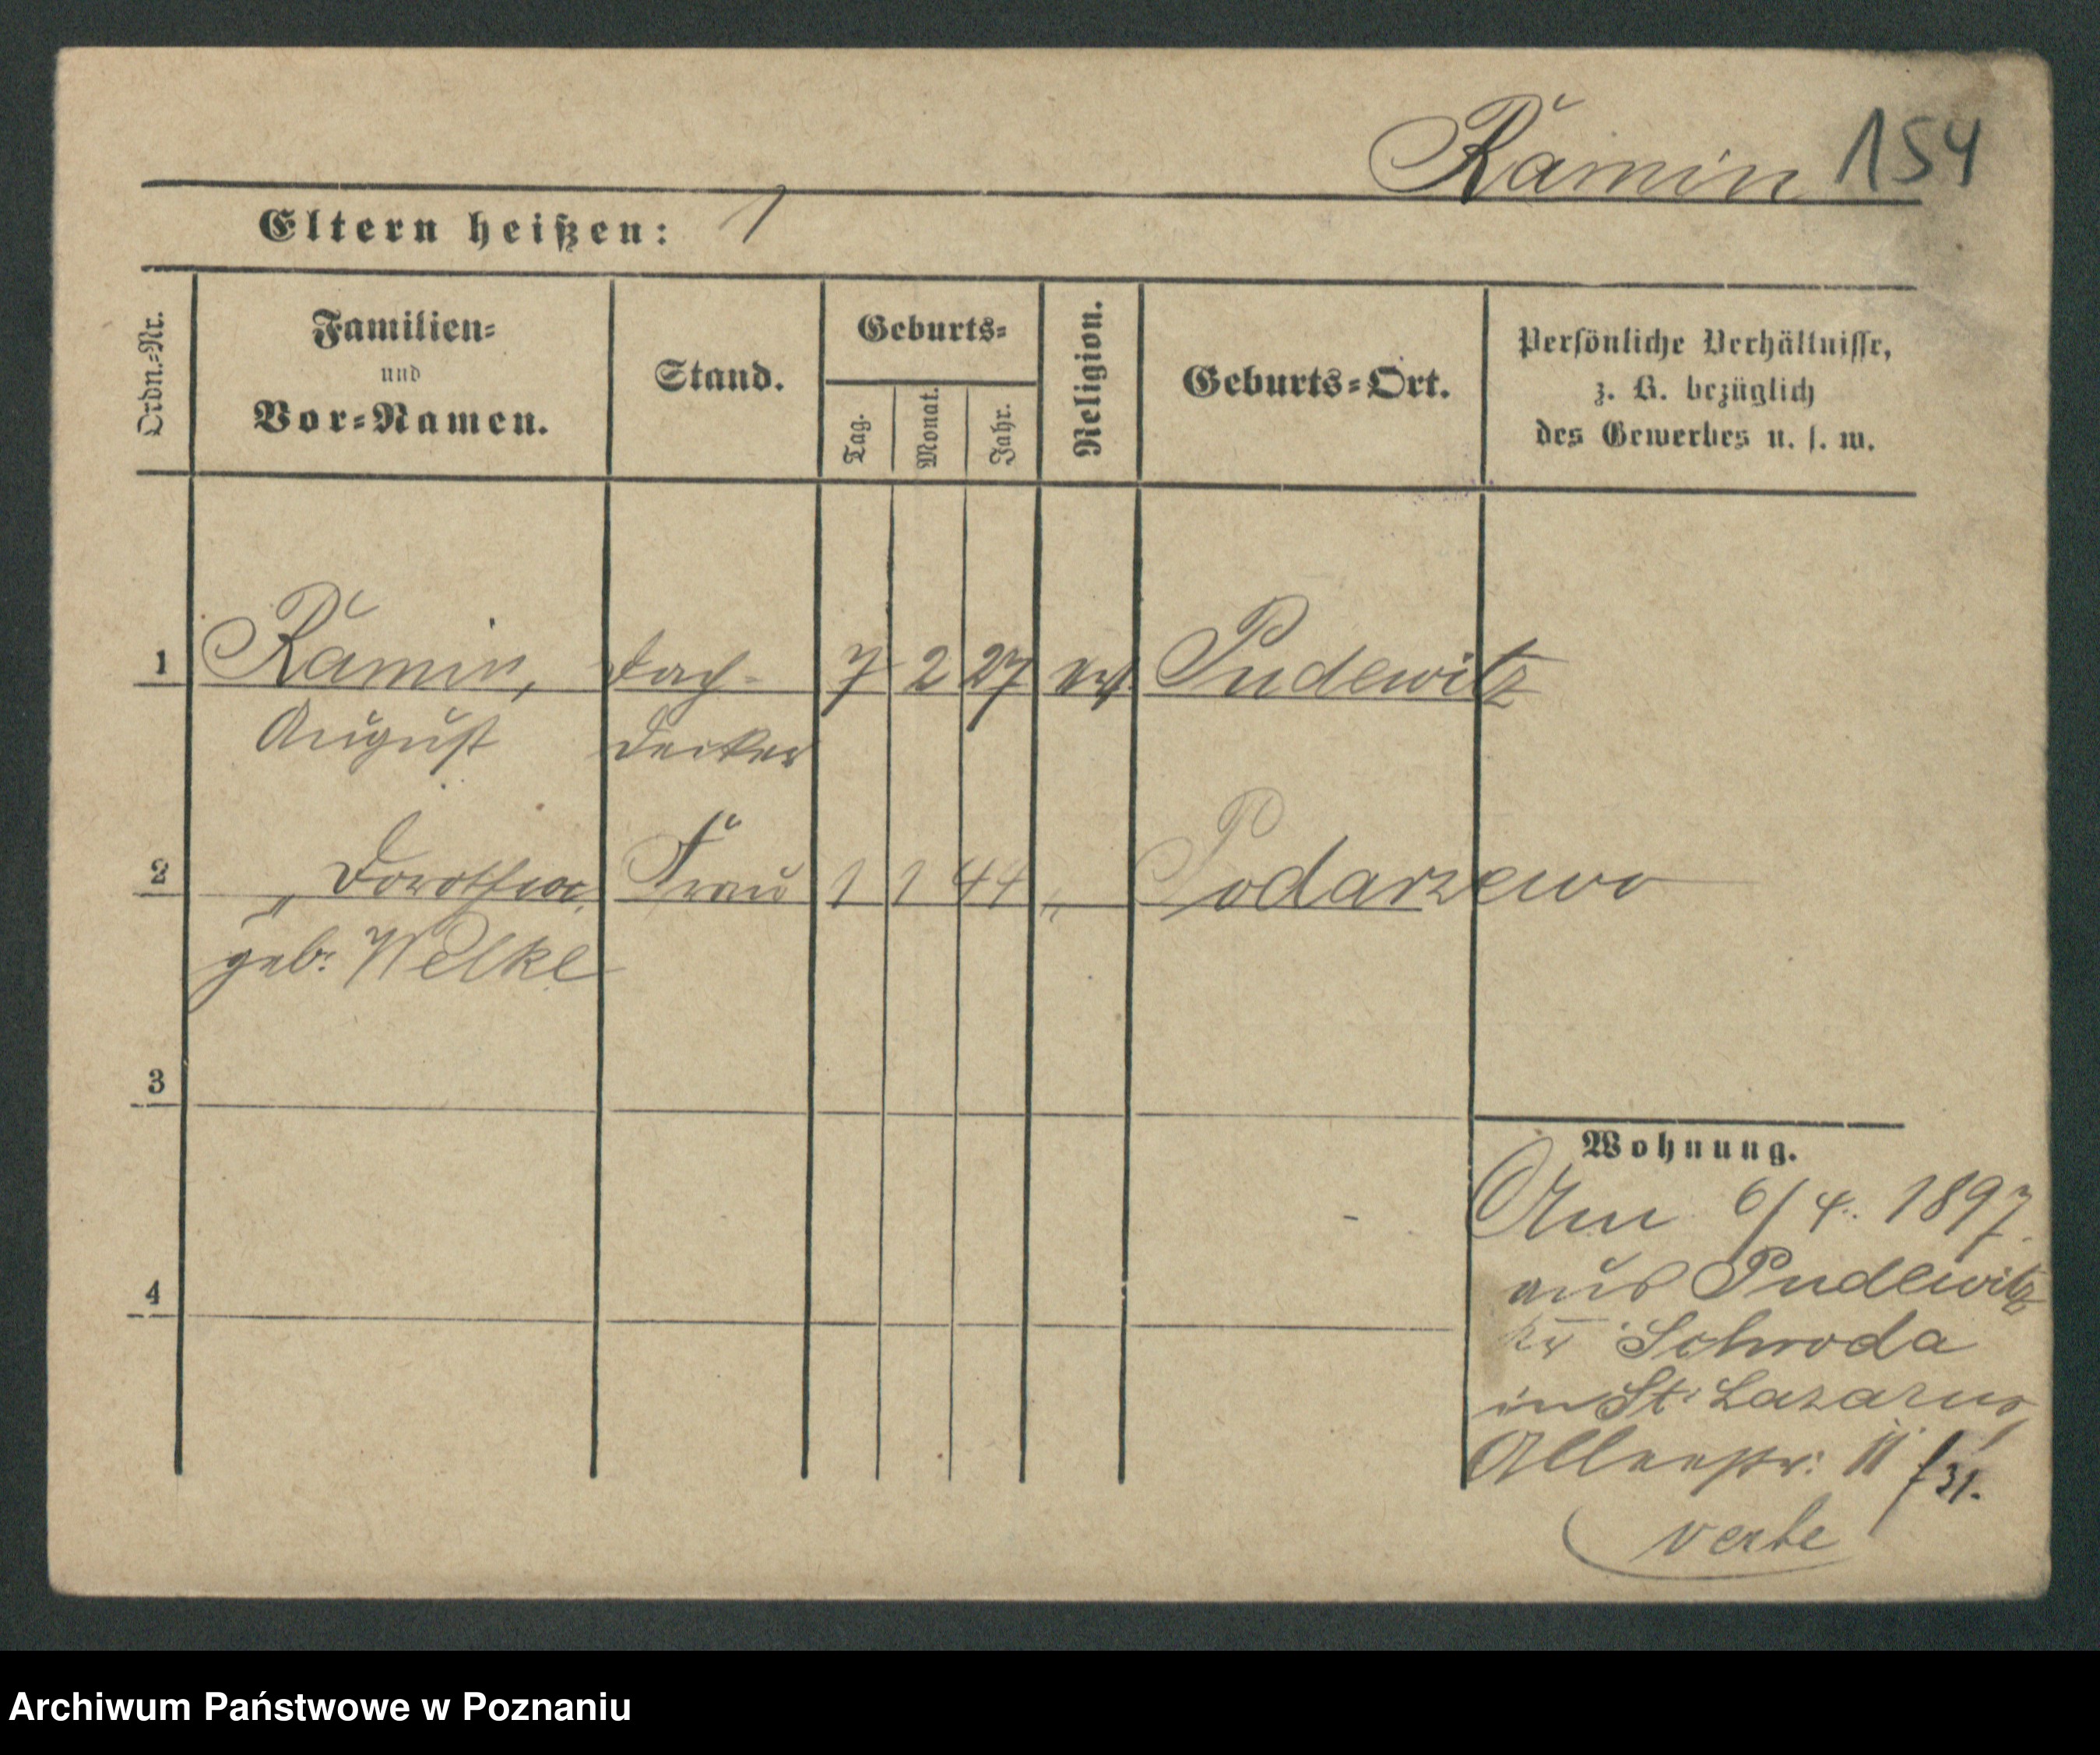 Ramin 154
Eltern heißen:
Ordn.-Nr.
Familien-
und
Vor-Namen.
Stand.
Geburts-
Tag.
Monat.
Jahr.
Religion.
Geburts-Ort.
Persönliche Verhältnisse,
z. B. bezüglich
des Gewerbes u. s. w.
1 Ramin, Dach- 7 2 27 ev. Pudewitz
August decker
2 " Dorothea Frau 1 1 44 " Podarzewo
geb. Welke
3
Wohnung.
Am 6/4. 1897.
aus Pudewitz
4
Kr Schroda
in St. Lazarus,
Alleestr. 11 f 31.
verte
Archiwum Państwowe w Poznaniu